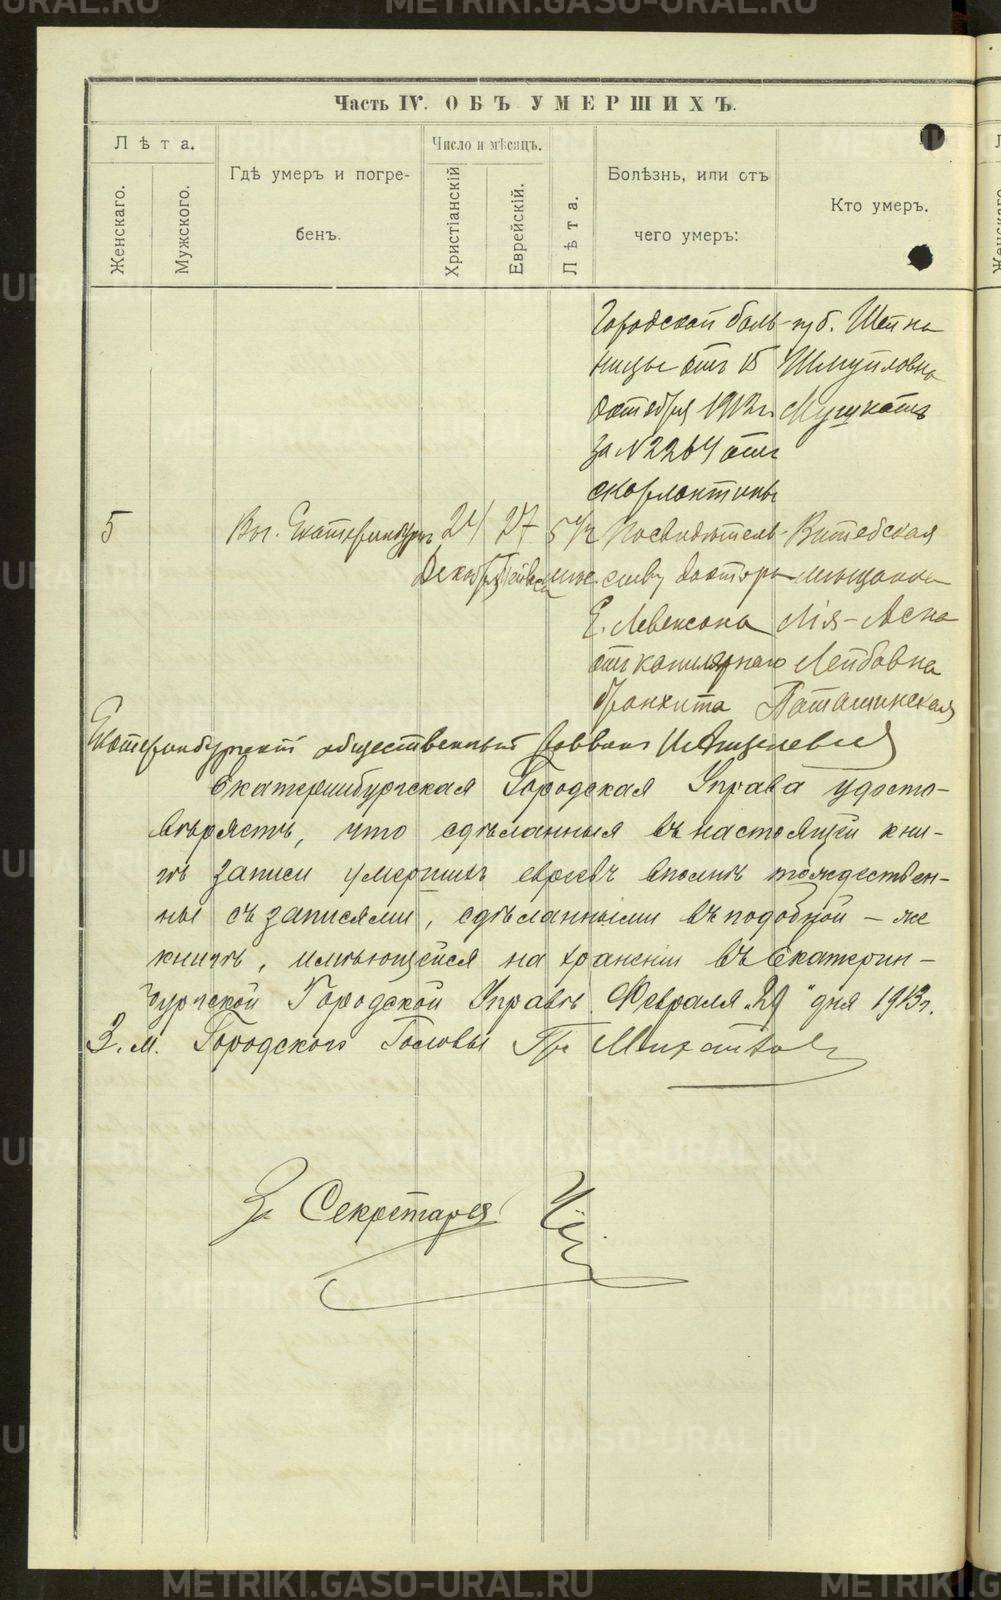 Часть IV. ОБЪ УМЕРШИХЪ.
Лѣта.
Женскаго.
Мужского.
Гдѣ умеръ и погре-
бенъ.
Число и мѣсяцъ.
Христіанскій
Еврейскій.
Лѣта.
Болѣзнь, или отъ
чего умеръ:
Кто умеръ.
Городской боль-
ницы отъ 15
Октября 1912 г.
за № 2264 отъ
скарлатины
губ. Шейна
Шмуйловна
Мушкатъ
5
Въ г. Екатеринбургѣ
24
Декабря
27
Тейвеса
5 1/2
мѣс.
По свидѣтель-
ству доктора
Е. Левенсона
отъ капилярнаго
бронхита
Витебская
мѣщанка
Лія-Асна
Лейбовна
Паташинская
Екатеринбургскій общественный Раввинъ
Екатеринбургская Городская Управа удосто-
вѣряетъ, что сдѣланныя въ настоящей кни-
гѣ записи умершихъ евреевъ вполнѣ тождествен-
ны съ записями, сдѣланными въ подобной-же
книгѣ, имѣющейся на храненіи въ Екатерин-
бургской Городской Управѣ. Февраля 29 дня 1913 г.
З. м. Городского Головы
За Секретаря
METRIKI.GASO-URAL.RU